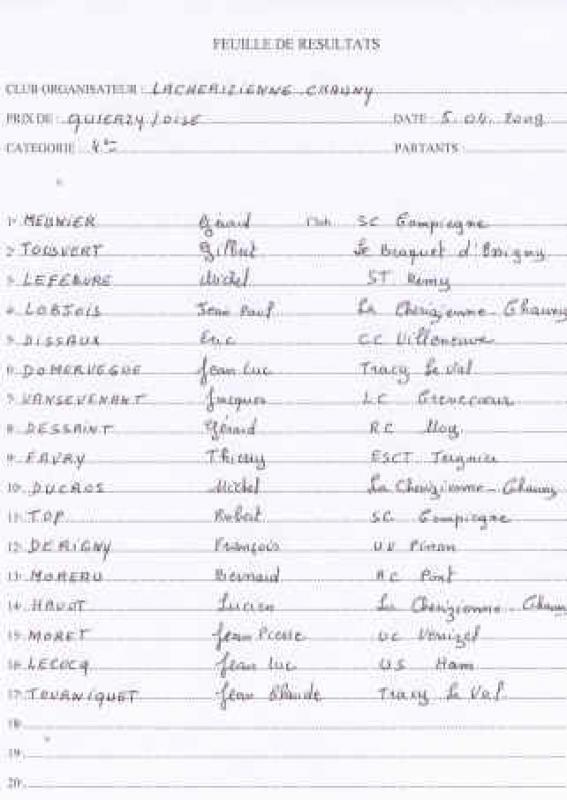 FEUILLE DE RESULTATS
CLUB ORGANISATEUR : LACHERIZIENNE CHAUNY
PRIX DE : QUIERZY / OISE DATE : 5. 04. 2009
CATEGORIE : 4 PARTANTS :
1- MEUNIER Gérard SC Compiegne
2- TOUSVERT Gilbert Le Braquet d'
3- LEFEBURE Michel ST Remy
4- LOBJOIS Jean Paul La Cherizienne - Chauny
5- DISSAUX Eric CC Villeneuve
6- DOMERVEGUE Jean Luc Tracy Le Val
7- VANSEVENANT Jacques LC
8- DESSAINT Gérard RC Moy
9- FAVRY Thierry ESCT Tergnier
10- DUCROS Michel La Cherizienne - Chauny
11- TOP Robert SC Compiegne
12- DERIGNY François UV Pinon
13- MOREAU Bernard AC Pont
14- HAVOT Lucien La Cherizienne - Chauny
15- MORET Jean Pierre UC Venizel
16- LECOCQ Jean Luc US Ham
17- TOURNIQUET Jean Claude Tracy Le Val
18-
19-
20-